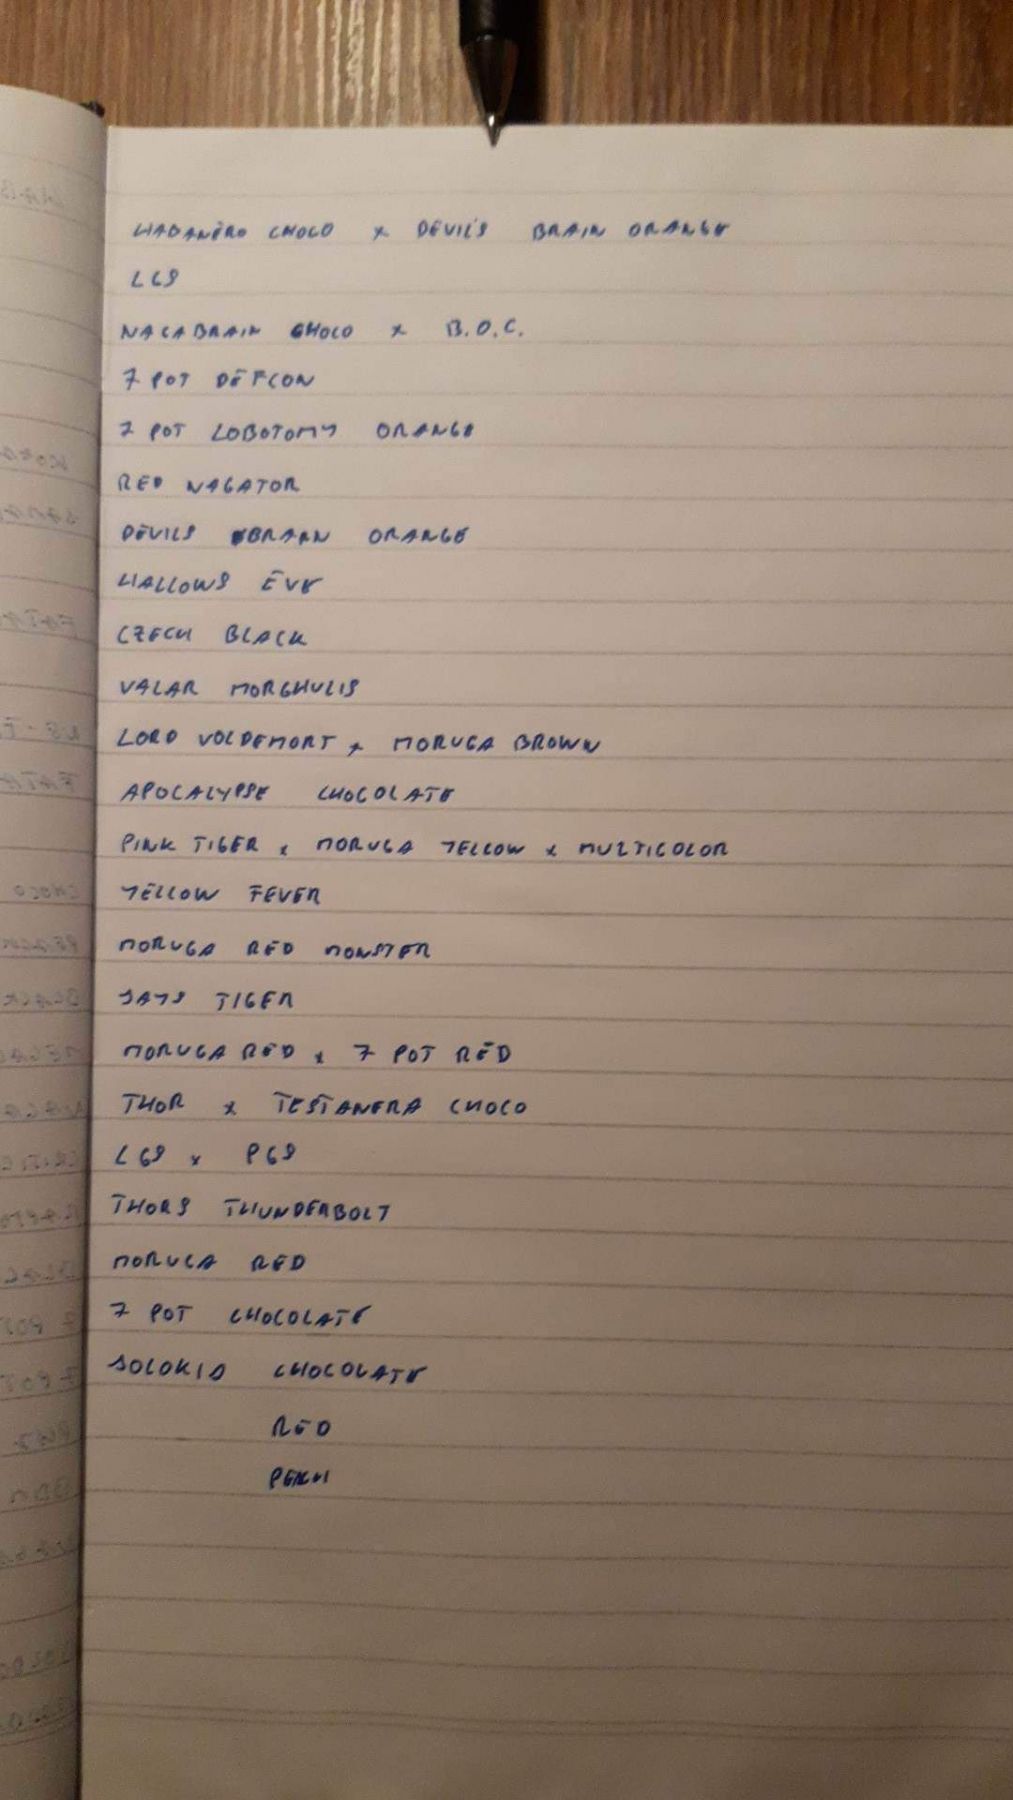 HABANERO CHOCO x DEVIL'S BRAIN ORANGE
LGS
NAGABRAIN CHOCO x B.O.C.
7 POT DEFCON
7 POT LOBOTOMY ORANGE
RED NAGATOR
DEVILS BRAIN ORANGE
HALLOWS EVE
CZECH BLACK
VALAR MORGHULIS
LORD VOLDEMORT x MORUGA BROWN
APOCALYPSE CHOCOLATE
PINK TIGER x MORUGA YELLOW x MULTICOLOR
YELLOW FEVER
MORUGA RED MONSTER
JAYS TIGER
MORUGA RED x 7 POT RED
THOR x TESTANERA CHOCO
LGS x PGS
THORS THUNDERBOLT
MORUGA RED
7 POT CHOCOLATE
JOLOKIA CHOCOLATE
RED
PEACH